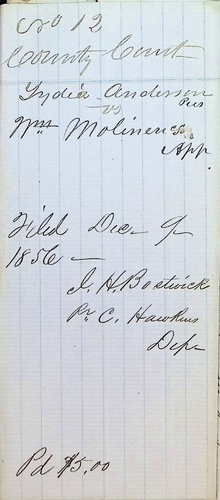 No 12
County Court
Lydia Anderson
vs
Wm Molineux
App
Filed Dec 9
1856
J. H. Bostwick
Pr C. Hawkins
Dep
Pd $5.00